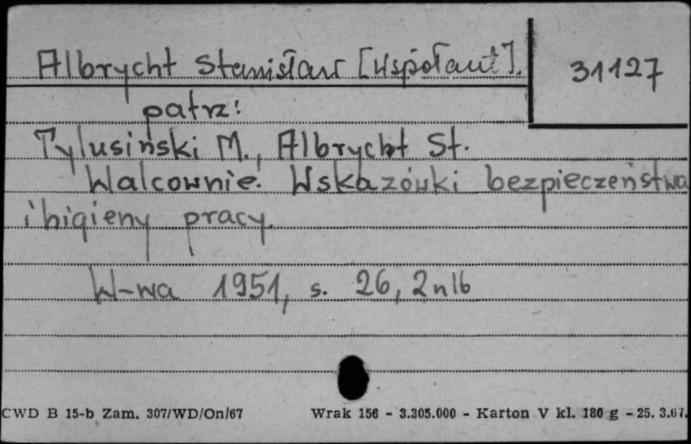 Albrycht Stanisław [współaut].
31127
patrz:
Tylusiński M., Albrycht St.
Walcownie. Wskazówki bezpieczeństwa
i higieny pracy.
W-wa 1951, s. 26, 2nlb
CWD B 15-b Zam. 307/WD/On/67 Wrak 156 - 3.305.000 - Karton V kl. 180 g - 25. 3.67.